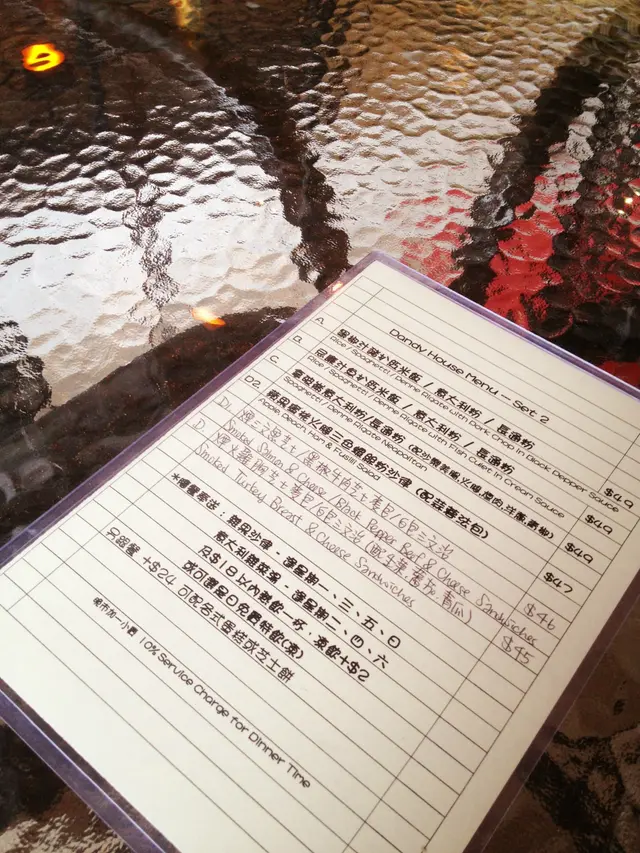 Dandy House Menu - Set 2
A. 黑椒汁豬扒伍米飯 / 意大利粉 / 長通粉
Rice / Spaghetti / Penne Rigate with Pork Chop in Black Pepper Sauce $49
B. 忌廉汁魚扒伍米飯 / 意大利粉 / 長通粉
Rice / Spaghetti / Penne Rigate with Fish Cutlet in Cream Sauce $49
C. 拿破崙意大利粉/長通粉
Spaghetti / Penne Rigate Neapolitan $49
D2. 蘋果蜜桃火腿三色螺絲粉沙律 (配蒜蓉法包)
Apple Peach Ham & Fusilli Salad $47
D1. 煙三文魚芝士/黑椒牛肉芝士麥包/白包三文治
Smoked Salmon & Cheese / Black Pepper Beef & Cheese Sandwiches $46
D. 煙火雞胸芝士麥包/白包三文治
Smoked Turkey Breast & Cheese Sandwiches $45
雜果沙律 - 逢星期一、三、五、日
意大利雜菜湯 - 逢星期二、四、六
及$18以內熱飲一杯 , 凍飲+$2
或可選是日免費特飲(凍)
另跟餐 +$24 可配各式蛋糕或芝士餅
晚市加一小費 10% Service Charge for Dinner Time